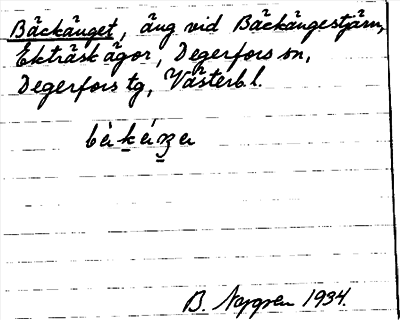 Bäckänget, äng vid Bäckängestjärn,
Ekträsk ägor, Degerfors sn,
Degerfors tg, Västerb. l.
B. Nygren 1934.